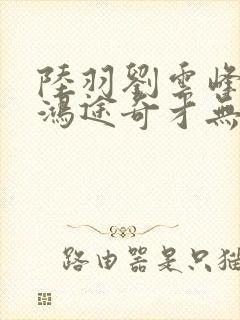 陸羽劉雲峰
鴻途奇才無
路由器是只猫